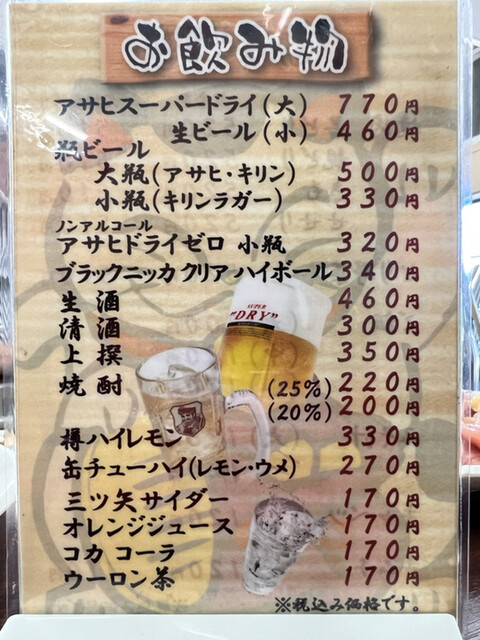 お飲み物
アサヒスーパードライ(大) 770円
生ビール(小) 460円
瓶ビール
大瓶(アサヒ・キリン) 500円
小瓶(キリンラガー) 330円
ノンアルコール
アサヒドライゼロ 小瓶 320円
ブラックニッカ クリア ハイボール 340円
生酒 460円
清酒 300円
上撰 350円
焼酎 (25%) 220円
(20%) 200円
樽ハイレモン 330円
缶チューハイ(レモン・ウメ) 270円
三ツ矢サイダー 170円
オレンジジュース 170円
コカ コーラ 170円
ウーロン茶 170円
※税込み価格です。
SUPER
"DRY"